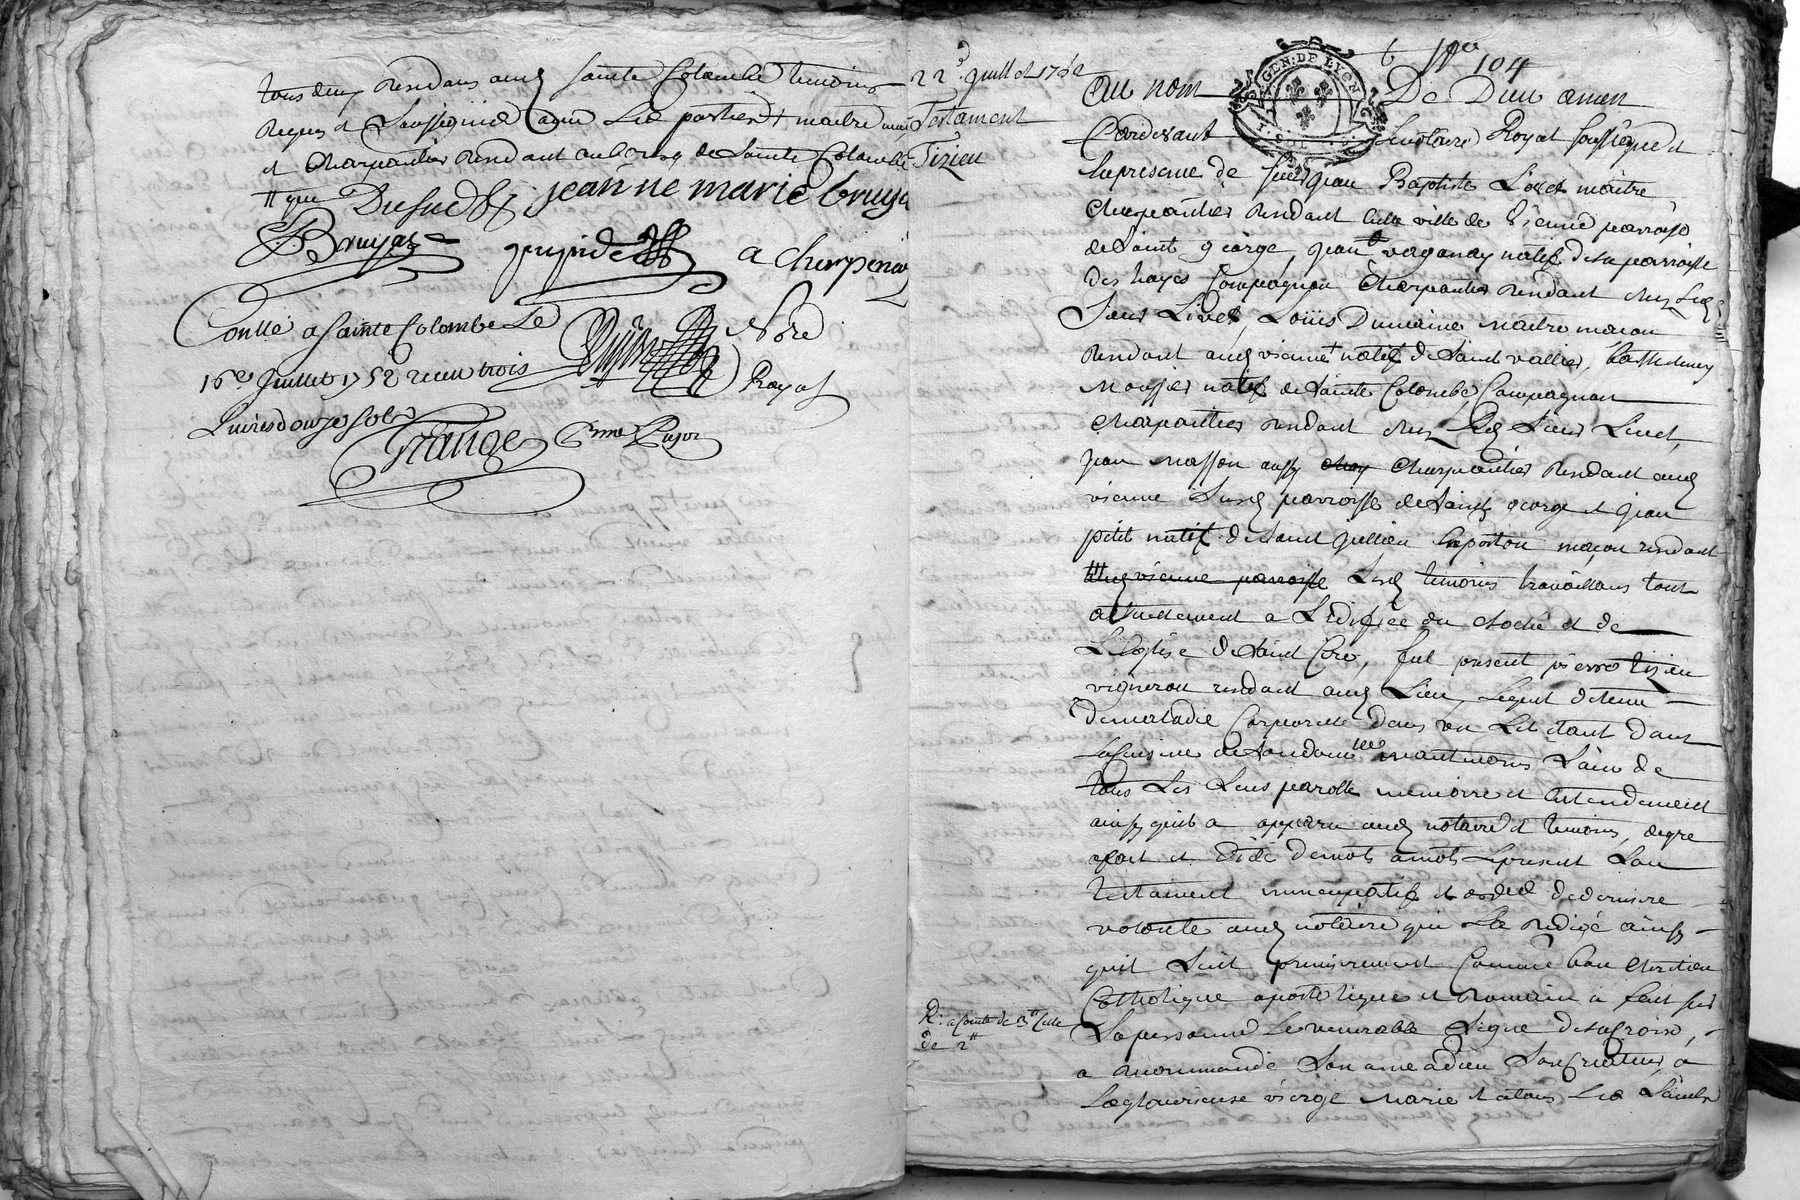 tous deux residans aud sainte Colombe temoins
Requis et Soussignés avec les parties + maitre
et charpantier residant au bourg de Sainte Colombe
jeanne marie bruya
Bruyas
a cherpenay
Conllé a Sainte Colombe Le
16e Juillet 1752 receu trois
Livres douze sols
Nore
Royal
Grange
22e Juillet 1752
Testament
Tizieu
No 104
GEN. DE LYON
Au nom De Dieu amen
Pardevant Lenotaire Royal soussigné et
En presence de Sieur Jean Baptiste Livet maitre
Charpantier residant en cette ville de Vienne parroisse
de Saint george, jean vaganay natif de la parroisse
des hayes Compagnon Charpantier residant chez Led
Sieur Livet, Loüis Dumaine maitre macon
residant aud vienne + natif de Saint vallier, barthelemy
natif de Sainte Colombe Compagnon
Charpantier residant chez Led Sieur Livet,
jean masson aussy charpantier residant aud
vienne Susd parroisse de Saint george et jean
petit natif de Saint jullien maçon residant
aud vienne parroisse Lesd temoins travaillans tout
actuellement a L'edifice du cloche et de
L'Eglise de Saint Cire, fut present pierre tizieu
vigneron residant aud Lieu, Lequel detenu
de maladie Corporelle dans un Lit etant dans
La Cuisine de Son domicille neantmoins Sain de
tous Les Sens parolle memoire et Entendement
ainsy quil a apparu aud notaire et temoins, de gre
a fait et dicté de mots a mots Le present Son
testament nuncupatif et ordre de derniere
volonté aud notaire qui L'a redigé ainsy
quil Suit premierement Comme bon Chretien
Catholique apostolique et Romain a fait sur
Sa personne Le venerable Signe de la croix,
a recommandé Son ame a dieu Son Createur, a
La glourieuse vierge Marie et a tous Les Saints